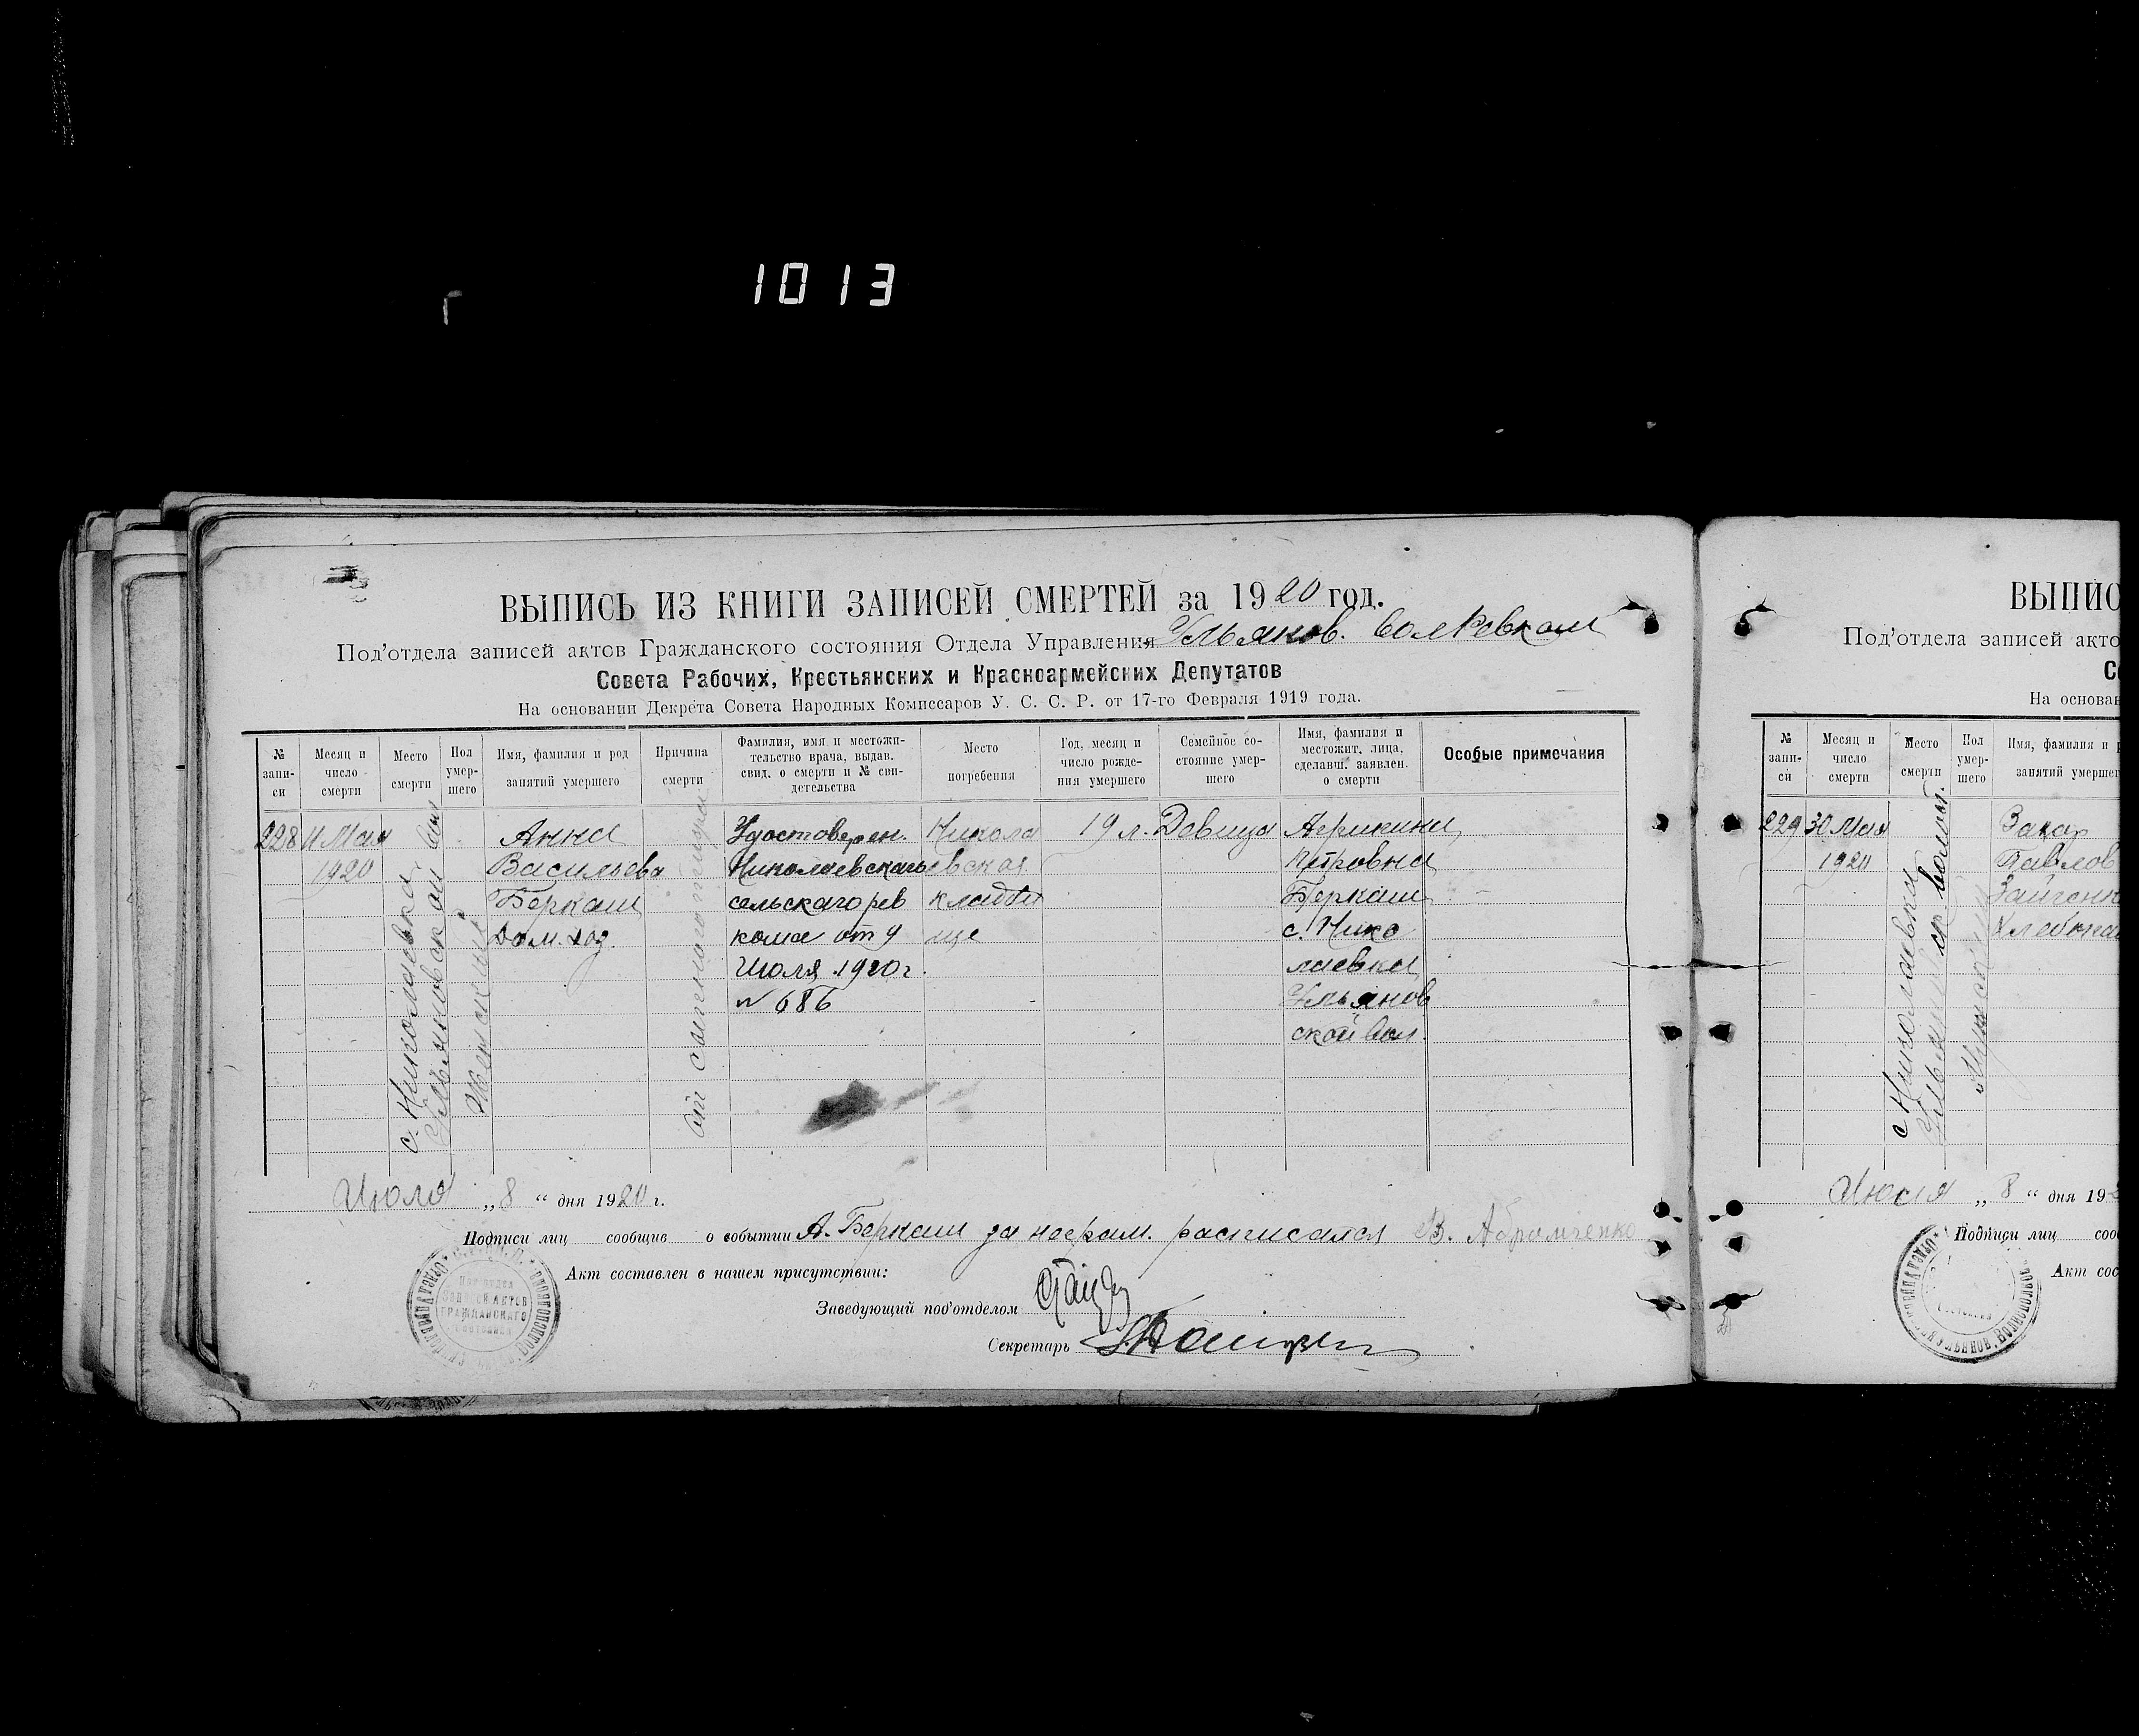 1013
ВЫПИСЬ ИЗ КНИГИ ЗАПИСЕЙ СМЕРТЕЙ за 1920 год.
Под'отдела записей актов Гражданского состояния Отдела Управления Ульянов. Волревком
Совета Рабочих, Крестьянских и Красноармейских Депутатов
На основании Декрета Совета Народных Комиссаров У. С. С. Р. от 17-го Февраля 1919 года.
№ записи
Месяц и число смерти
Место смерти
Пол умершего
Имя, фамилия и род занятий умершего
Причина смерти
Фамилия, имя и местожительство врача, выдав. свид. о смерти и № свидетельства
Место погребения
Год, месяц и число рождения умершего
Семейное состояние умершего
Имя, фамилия и местожит. лица, сделавш. заявлен. о смерти
Особые примечания
228
11 Мая
1920
с. Николаевка
Ульяновской вол
Женский
Анна
Васильева
Беркаш
Дом. хоз.
от
Удостоверен.
Николаевскаго
сельскаго рев
кома от 9
Июля 1920 г.
№ 686
Никола
евская
кладби
ще
19 л.
Девица
Агрикина
Петровна
Беркаш
с. Нико
лаевка
Ульянов
ской вол.
Июля „8“ дня 1920 г.
Подписи лиц сообщив о событии А. Беркаш за неграм. расписался В. Абрамченко
Акт составлен в нашем присутствии:
Заведующий под'отделом
Секретарь
ЗАПИСЕЙ АКТОВ
ГРАЖДАНСКОГО
ВЫПИС
Под'отдела записей акто
Со
На основан
№ записи
Месяц и число смерти
Место смерти
Пол умершего
Имя, фамилия и р
занятий умершег
229
30 Мая
1920
с Николаевка
Захар
Павлов
Июля „8“ дня 192
Подписи лиц соо
Акт сос